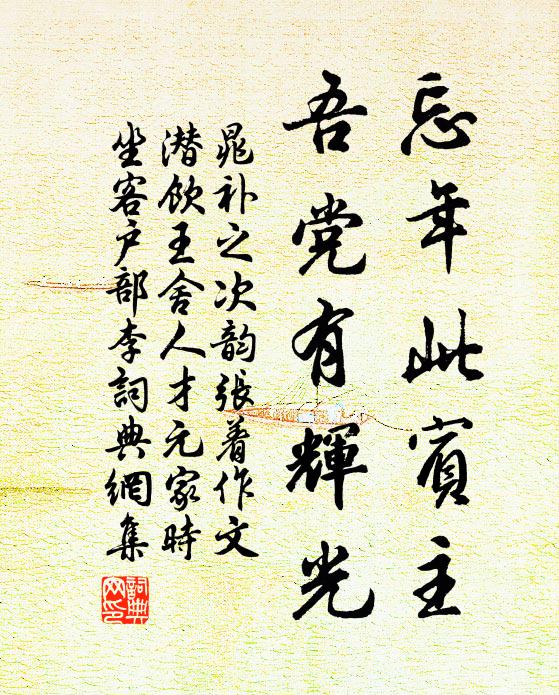 忘年此賓主
吾党有輝光
晁补之次韵張著作文
潜飲王舍人才元家時
坐客户部李詞典網集
詞典網印